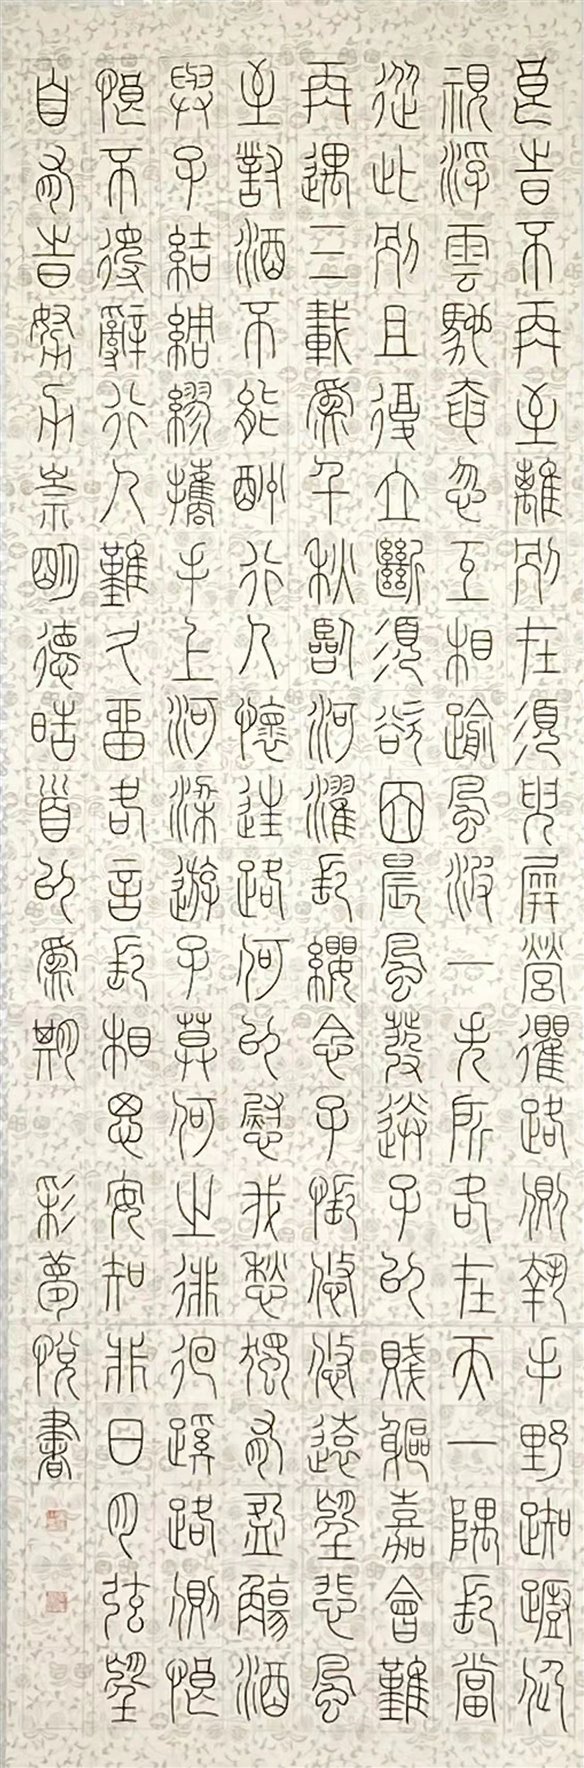 良時不再至離別在須臾屏營衢路側執手野踟躕仰
視浮雲馳奄忽互相踰風波一失所各在天一隅長當
從此別且復立斷須欲因晨風發送子以賤軀嘉會難
再遇三載為千秋臨河濯長纓念子悵悠悠遠望悲風
至對酒不能酬行人懷往路何以慰我愁獨有盈觴酒
與子結綢繆攜手上河梁遊子莫何之徘徊蹊路側悢
悢不得辭行人難久留各言長相思安知非日月弦望
自有時努力崇明德皓首以為期 彩夢悅書